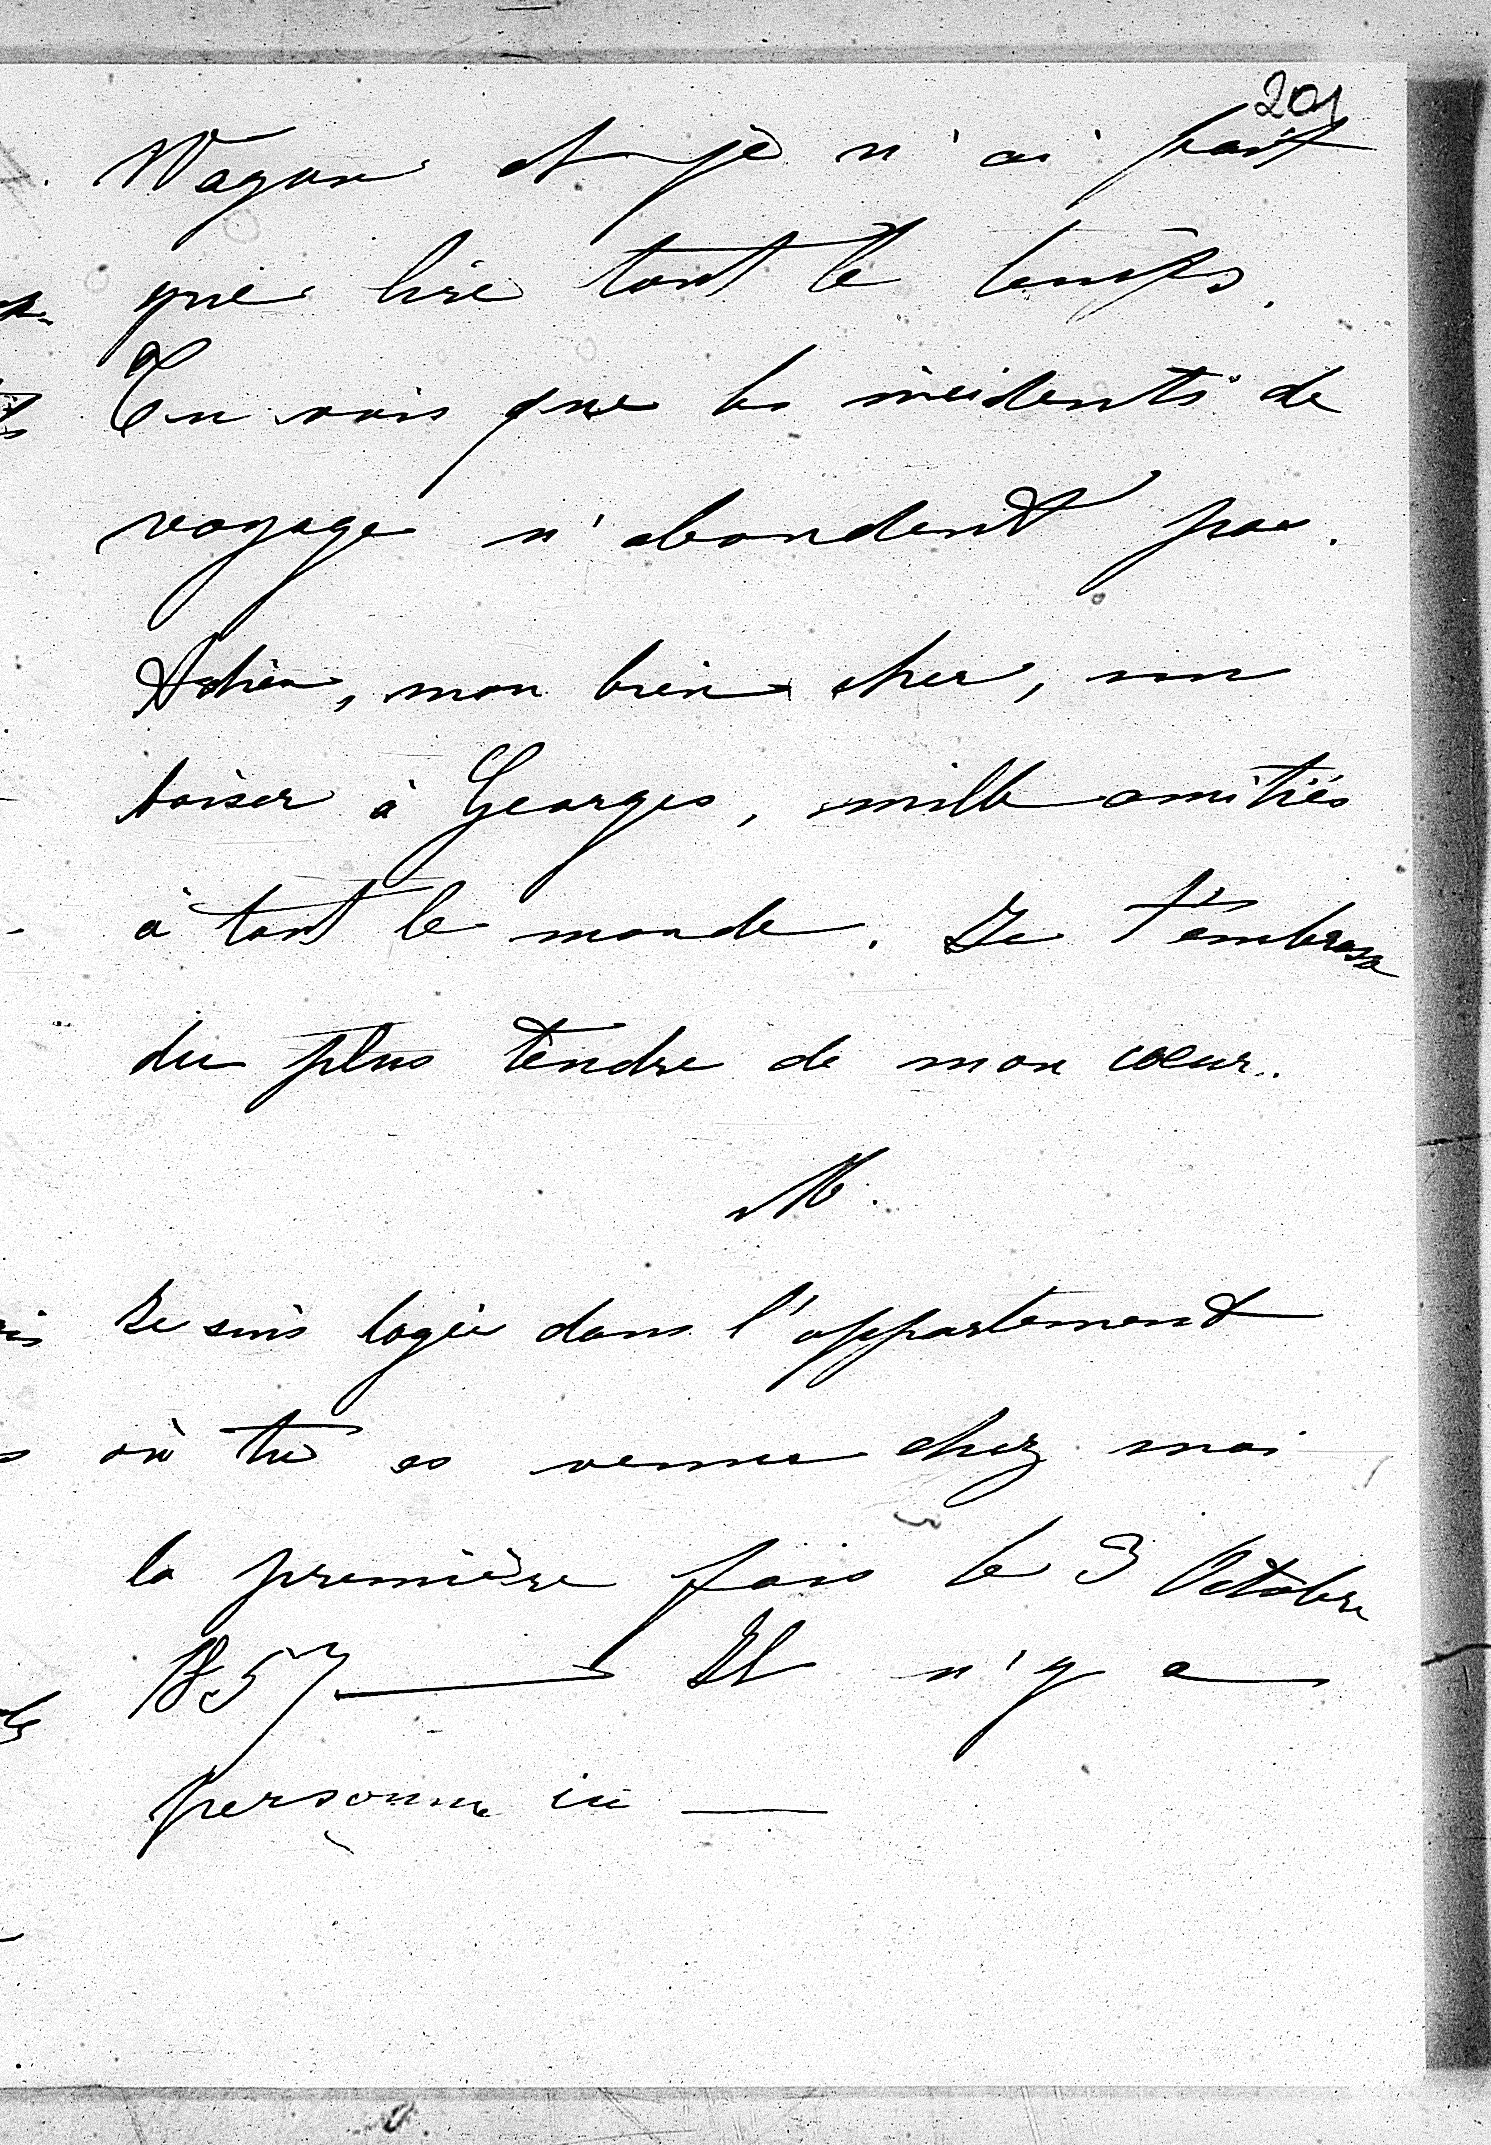 201
Wagon et je n'ai fait
que lire tout le temps.
Tu vois que les incidents de
voyage n'abondent pas.
Adieu, mon bien cher, un
baiser à Georges, mille amitiés
à tout le monde. Je t'embrasse
du plus tendre de mon cœur..
M.
Je suis logée dans l'appartement
où tu es venu chez moi
la première fois le 3 Octobre
1857 — Il n'y a
personne ici —